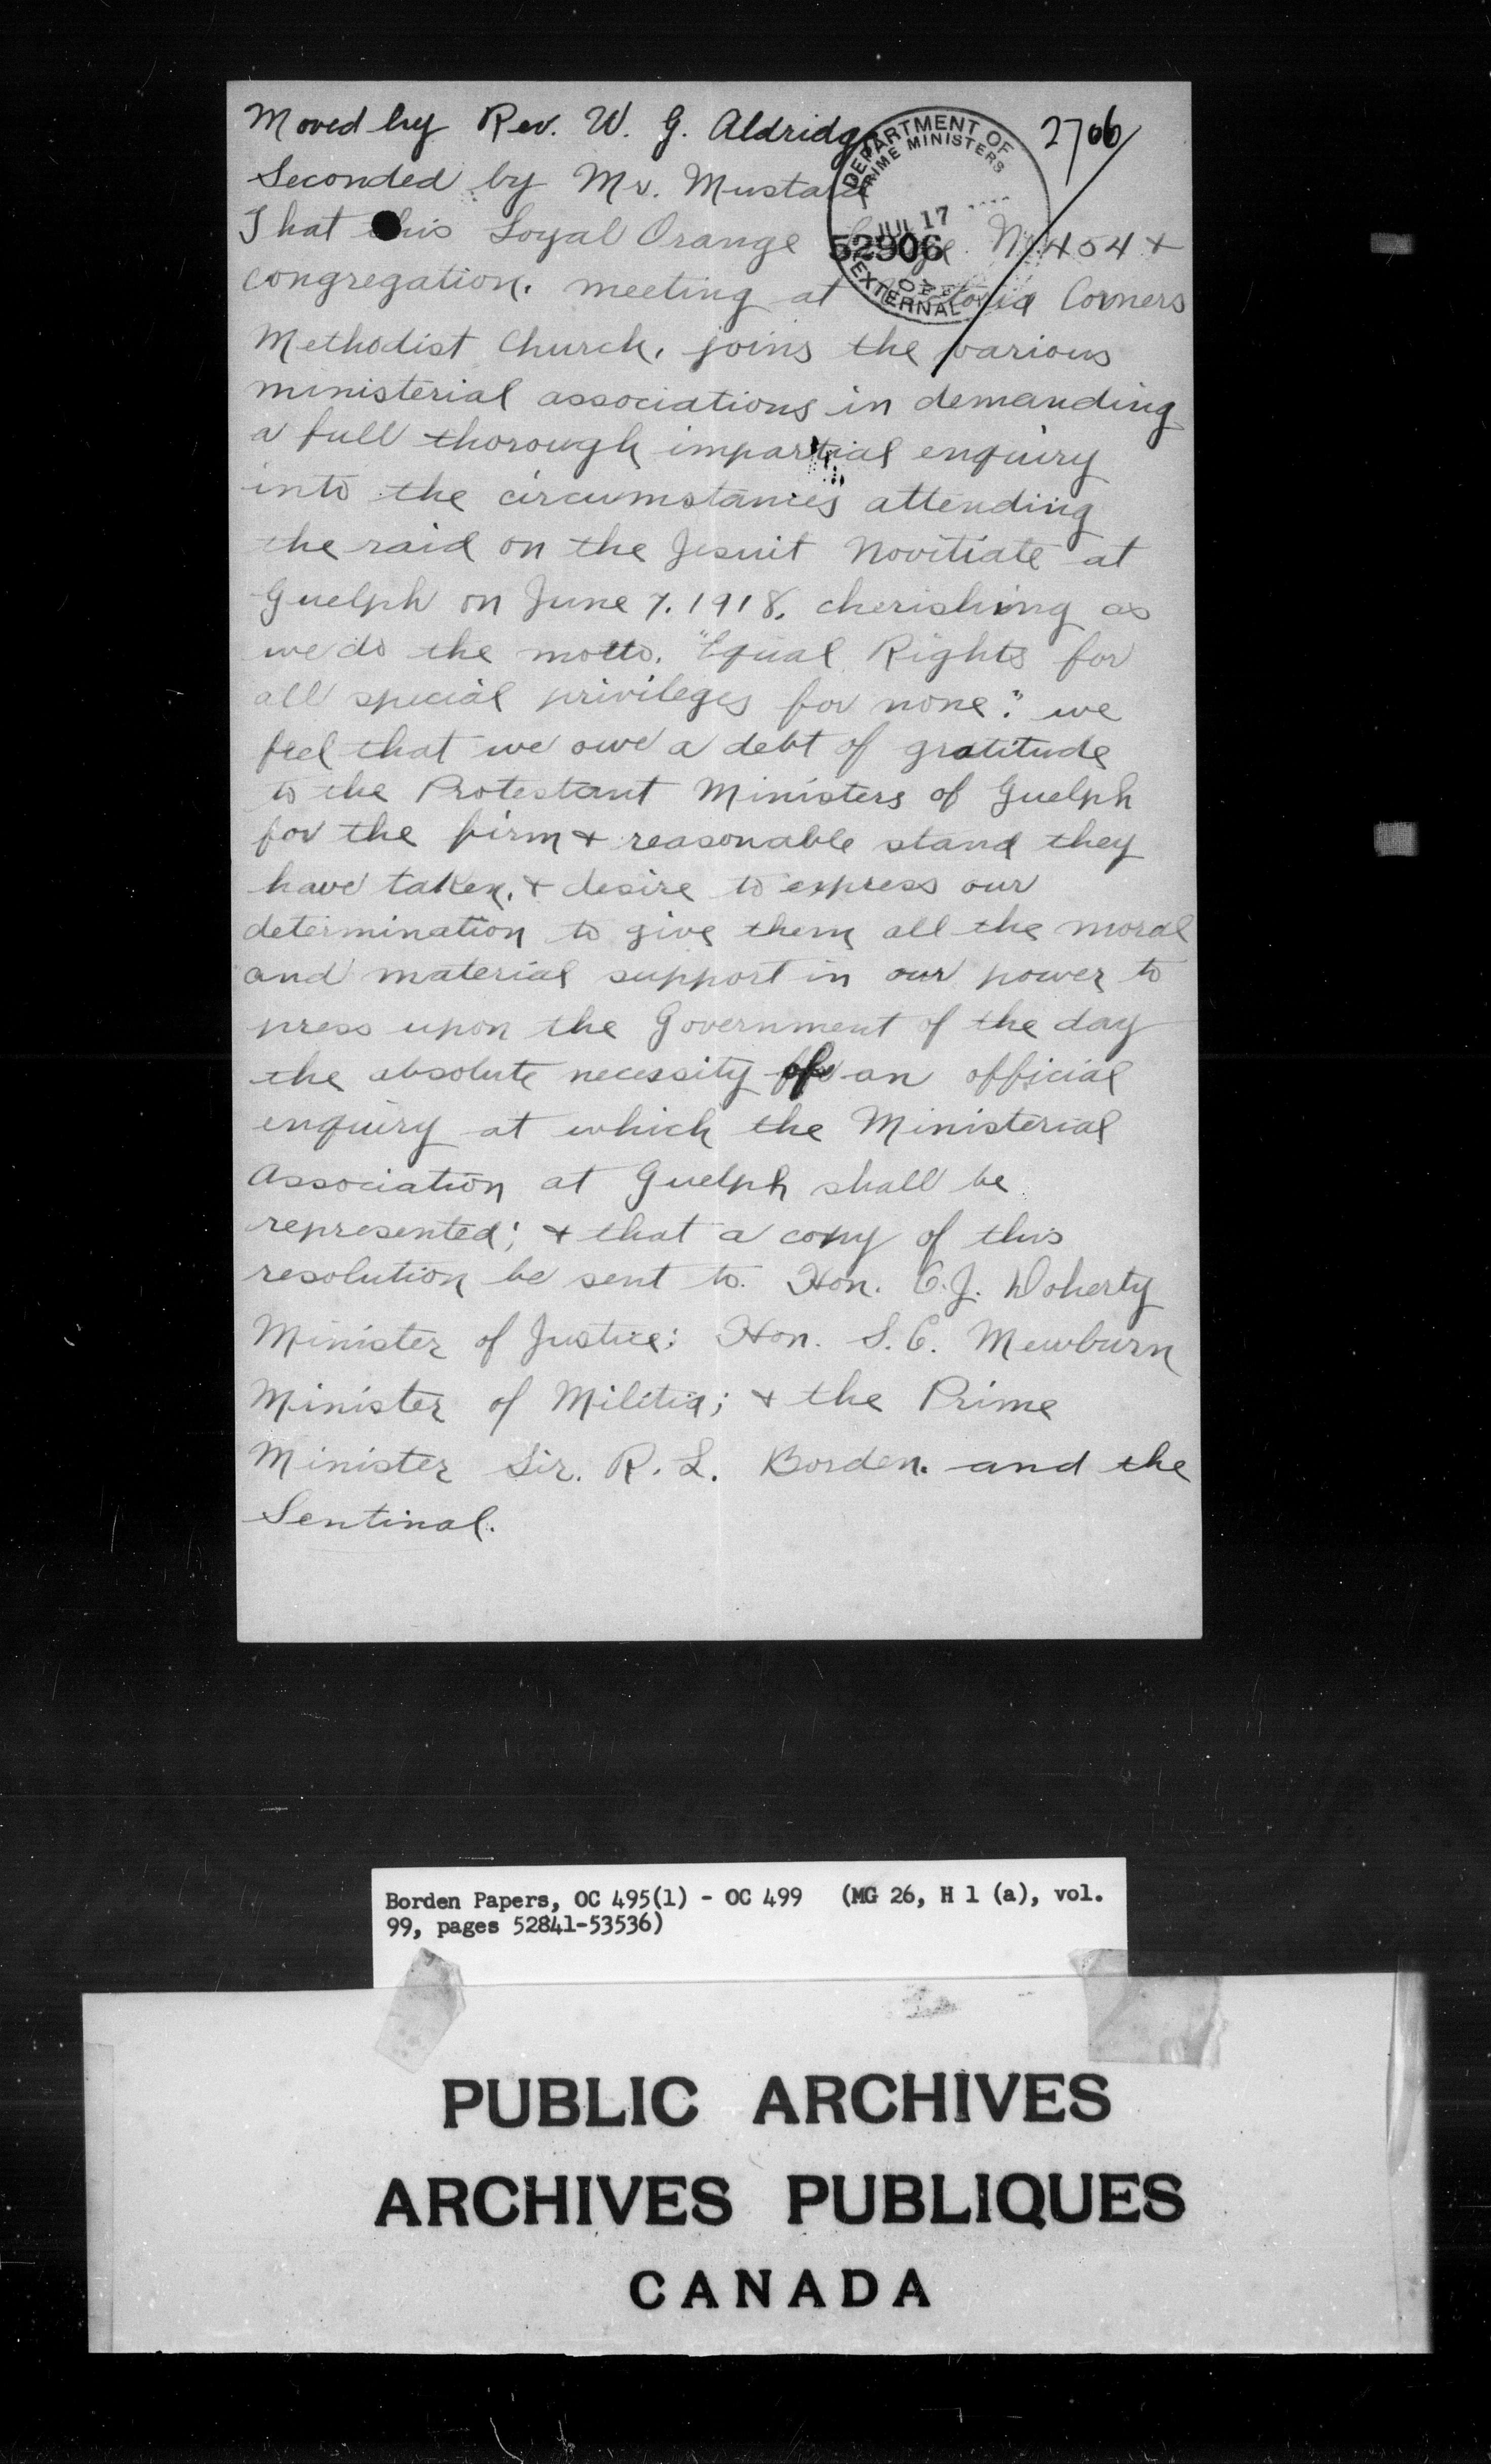 Moved by Rev. W. G. Aldridge
2706
Seconded by Mr. Mustard
DEPARTMENT OF
PRIME MINISTERS
JUL 17
52906
EXTERNAL
That this Loyal Orange Lodge No. 454 +
congregation. meeting at Victoria Corners
Methodist Church, joins the various
ministerial associations in demanding
a full thorough impartial enquiry
into the circumstances attending
the raid on the Jesuit Novitiate at
Guelph on June 7. 1918. cherishing as
we do the motto. "Equal Rights for
all special privileges for none". we
feel that we owe a debt of gratitude
to the Protestant Ministers of Guelph
for the firm + reasonable stand they
have taken, + desire to express our
determination to give them all the moral
and material support in our power to
press upon the Government of the day
the absolute necessity of an official
enquiry at which the Ministerial
Association at Guelph shall be
represented; + that a copy of this
resolution be sent to. Hon. C. J. Doherty
Minister of Justice; Hon. S. C. Mewburn
Minister of Militia; + the Prime
Minister Sir. R. L. Borden. and the
Sentinal.
Borden Papers, OC 495(1) - OC 499 (MG 26, H 1 (a), vol.
99, pages 52841-53536)
PUBLIC ARCHIVES
ARCHIVES PUBLIQUES
CANADA